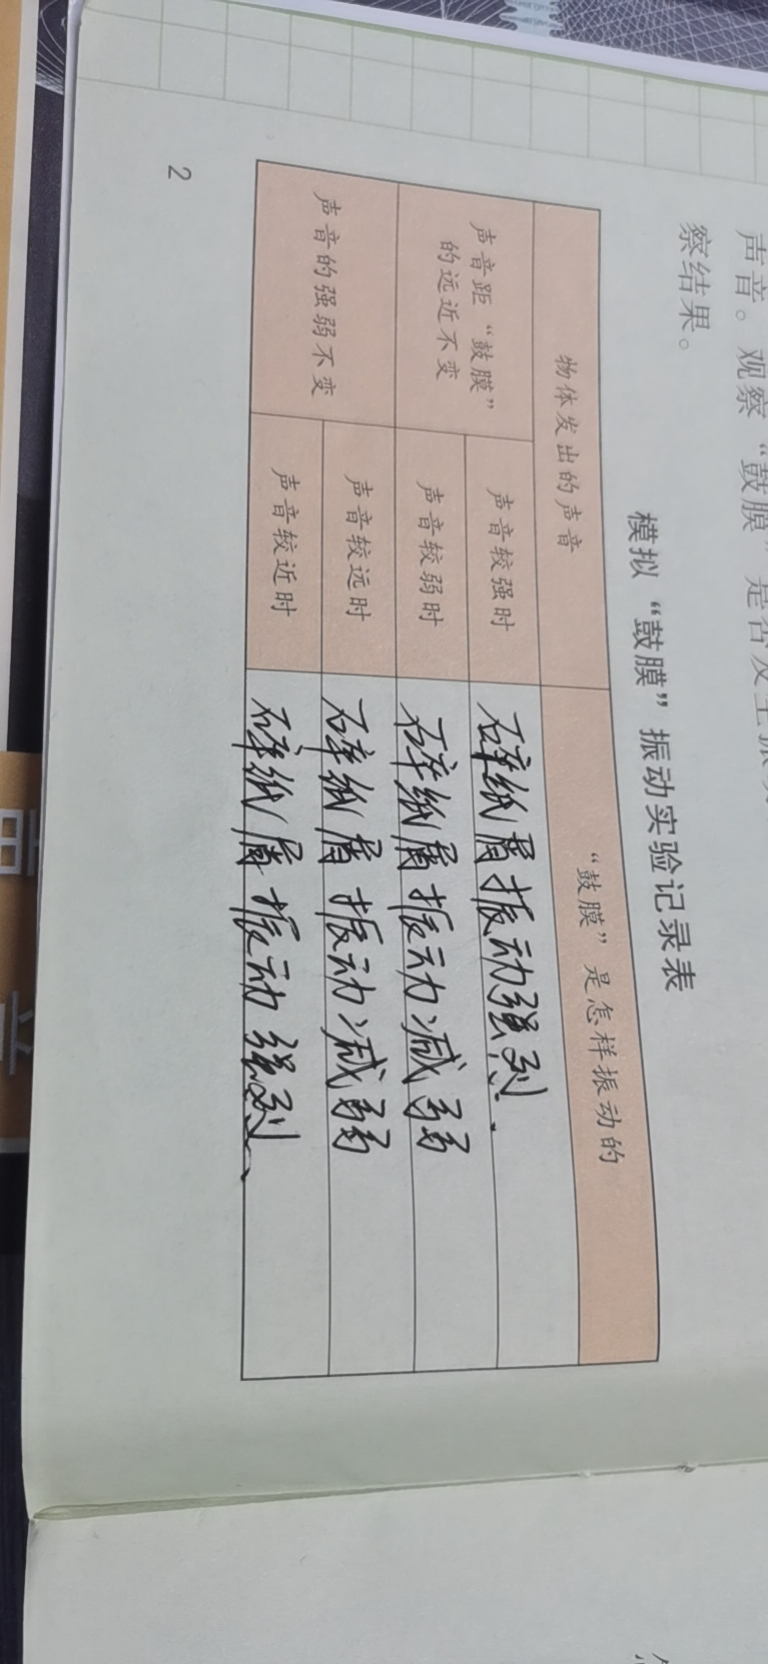 声音。观察“鼓膜”是否发生振动
察结果。
模拟“鼓膜”振动实验记录表
物体发出的声音
“鼓膜”是怎样振动的
声音距“鼓膜”
的远近不变
声音较强时
碎纸屑振动强烈.
声音较弱时
碎纸屑振动减弱
声音的强弱不变
声音较远时
碎纸屑振动减弱
声音较近时
碎纸屑振动强烈、
2